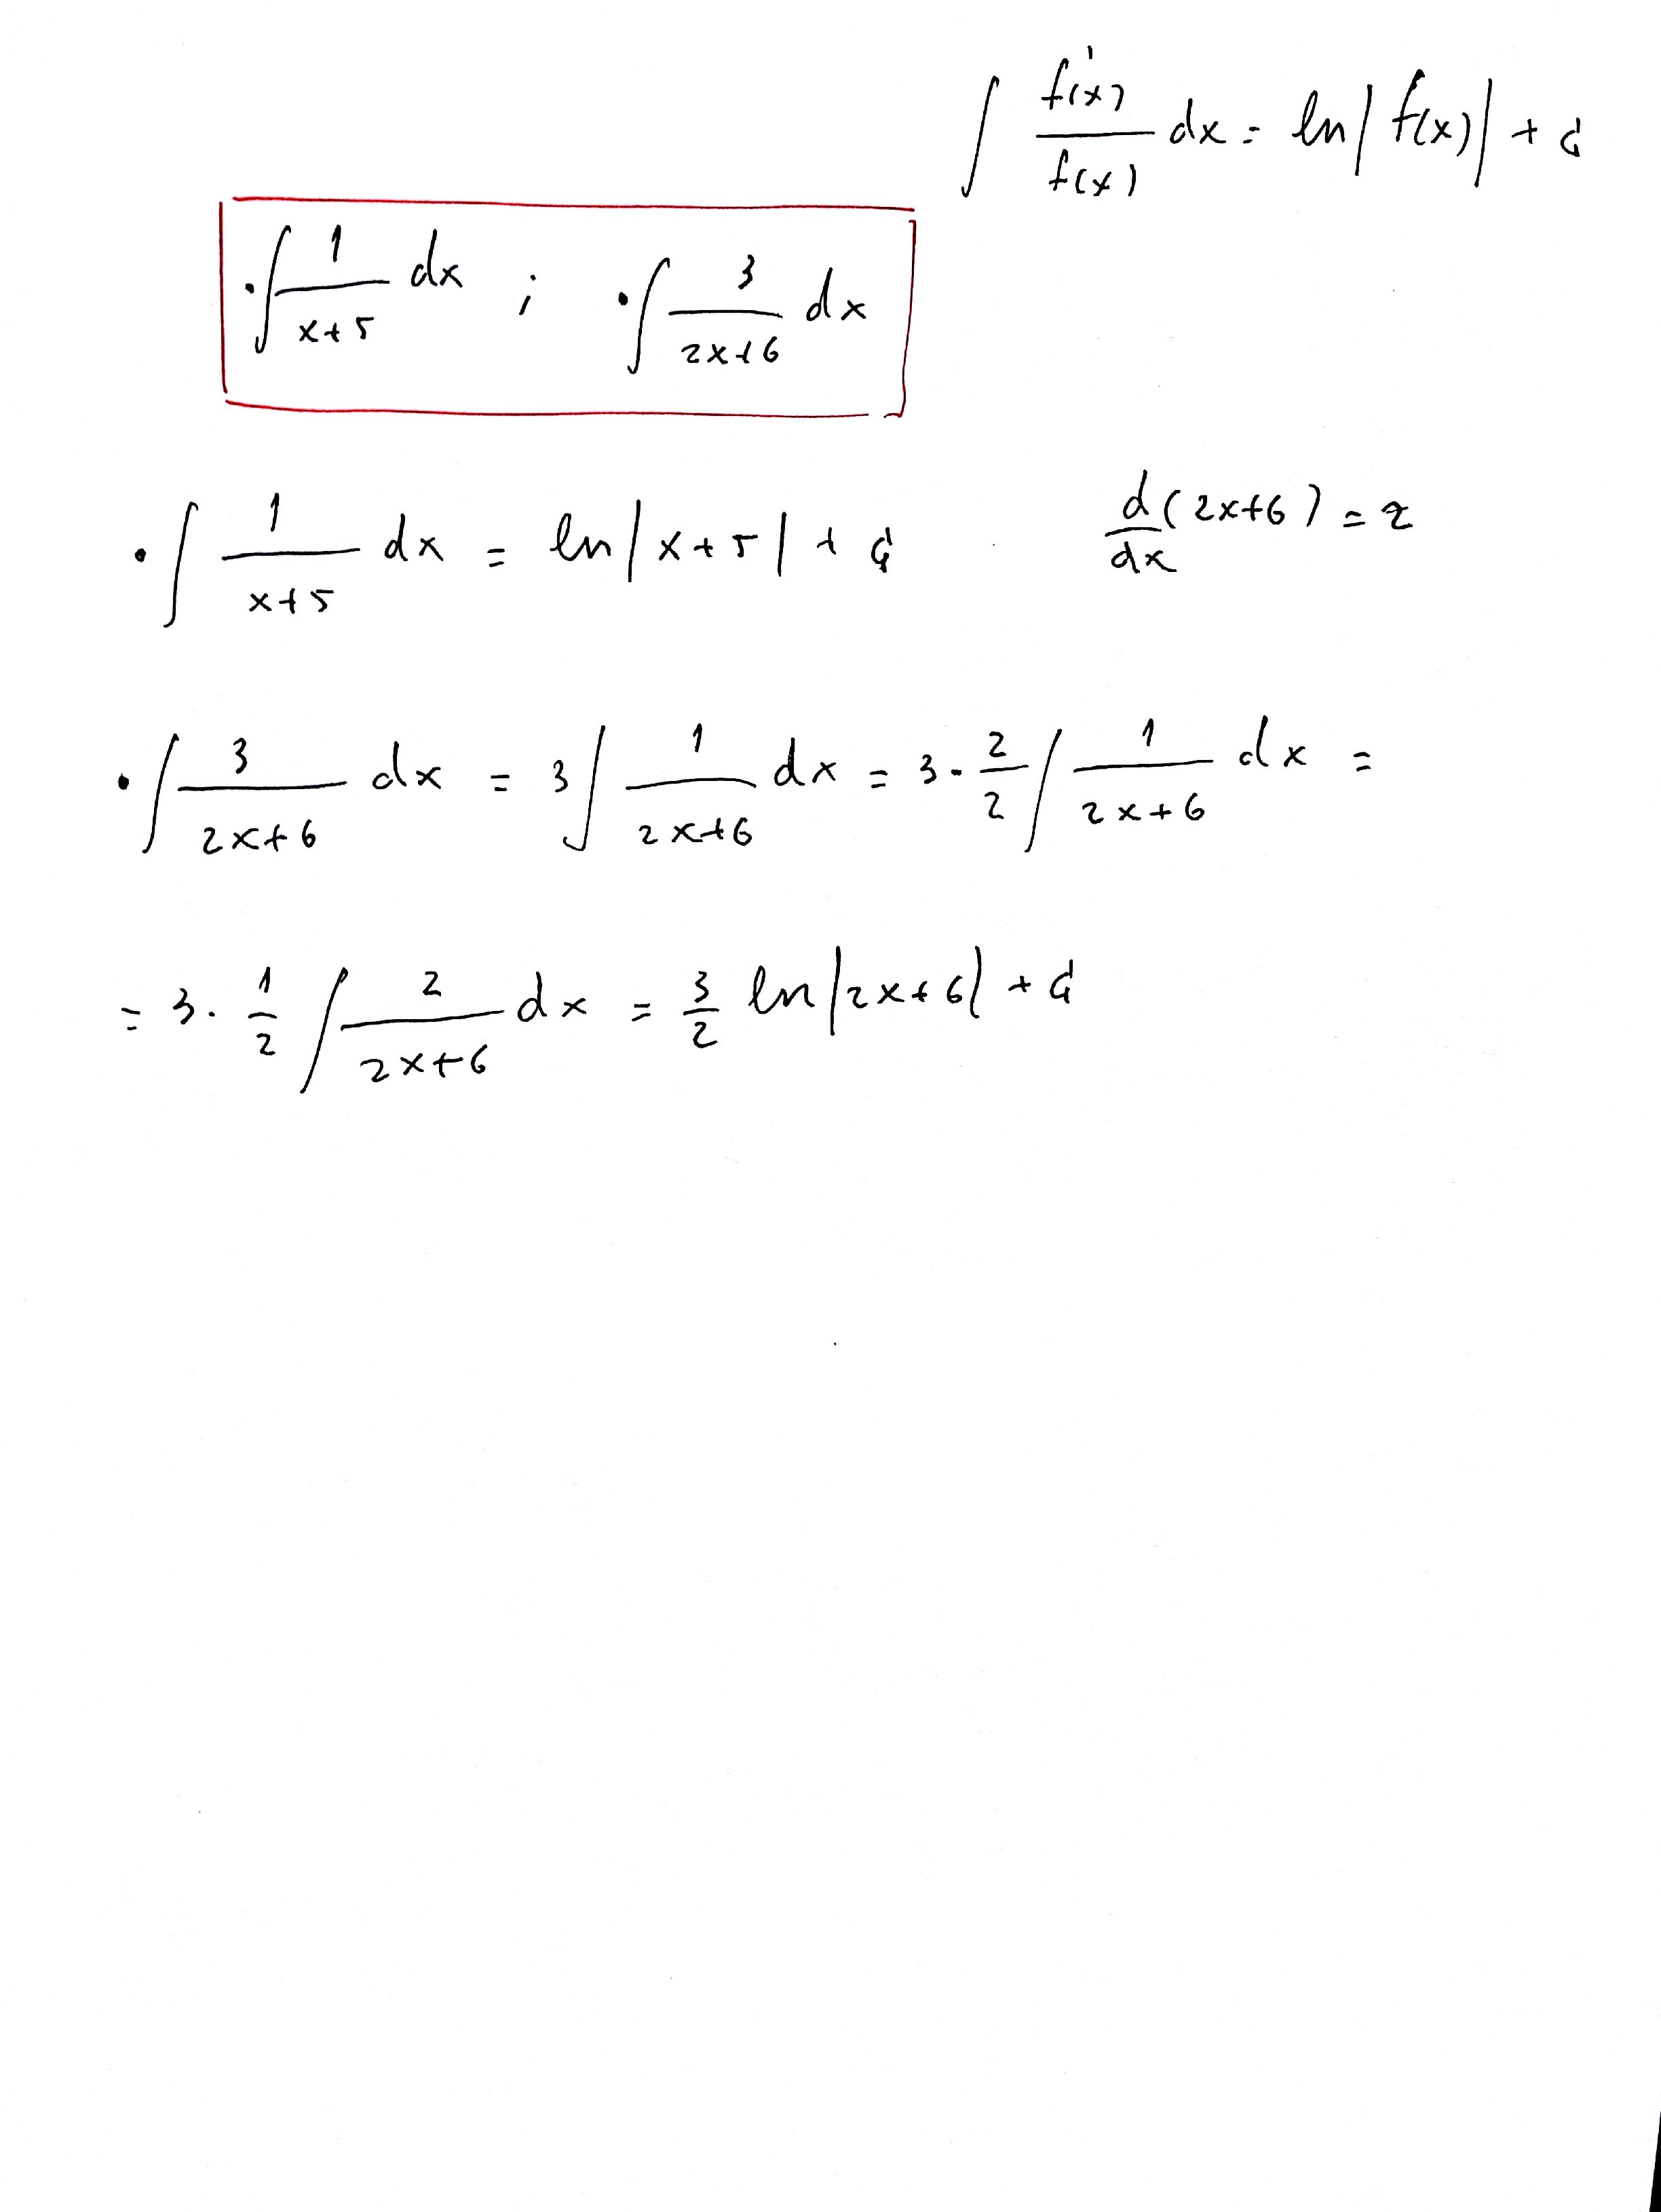 ∫ f'(x)/f(x) dx = ln|f(x)| + C
• ∫ 1/(x+5) dx ; • ∫ 3/(2x+6) dx
• ∫ 1/(x+5) dx = ln|x+5| + C
d/dx (2x+6) = 2
• ∫ 3/(2x+6) dx = 3 ∫ 1/(2x+6) dx = 3 · 2/2 ∫ 1/(2x+6) dx =
= 3 · 1/2 ∫ 2/(2x+6) dx = 3/2 ln|2x+6| + C